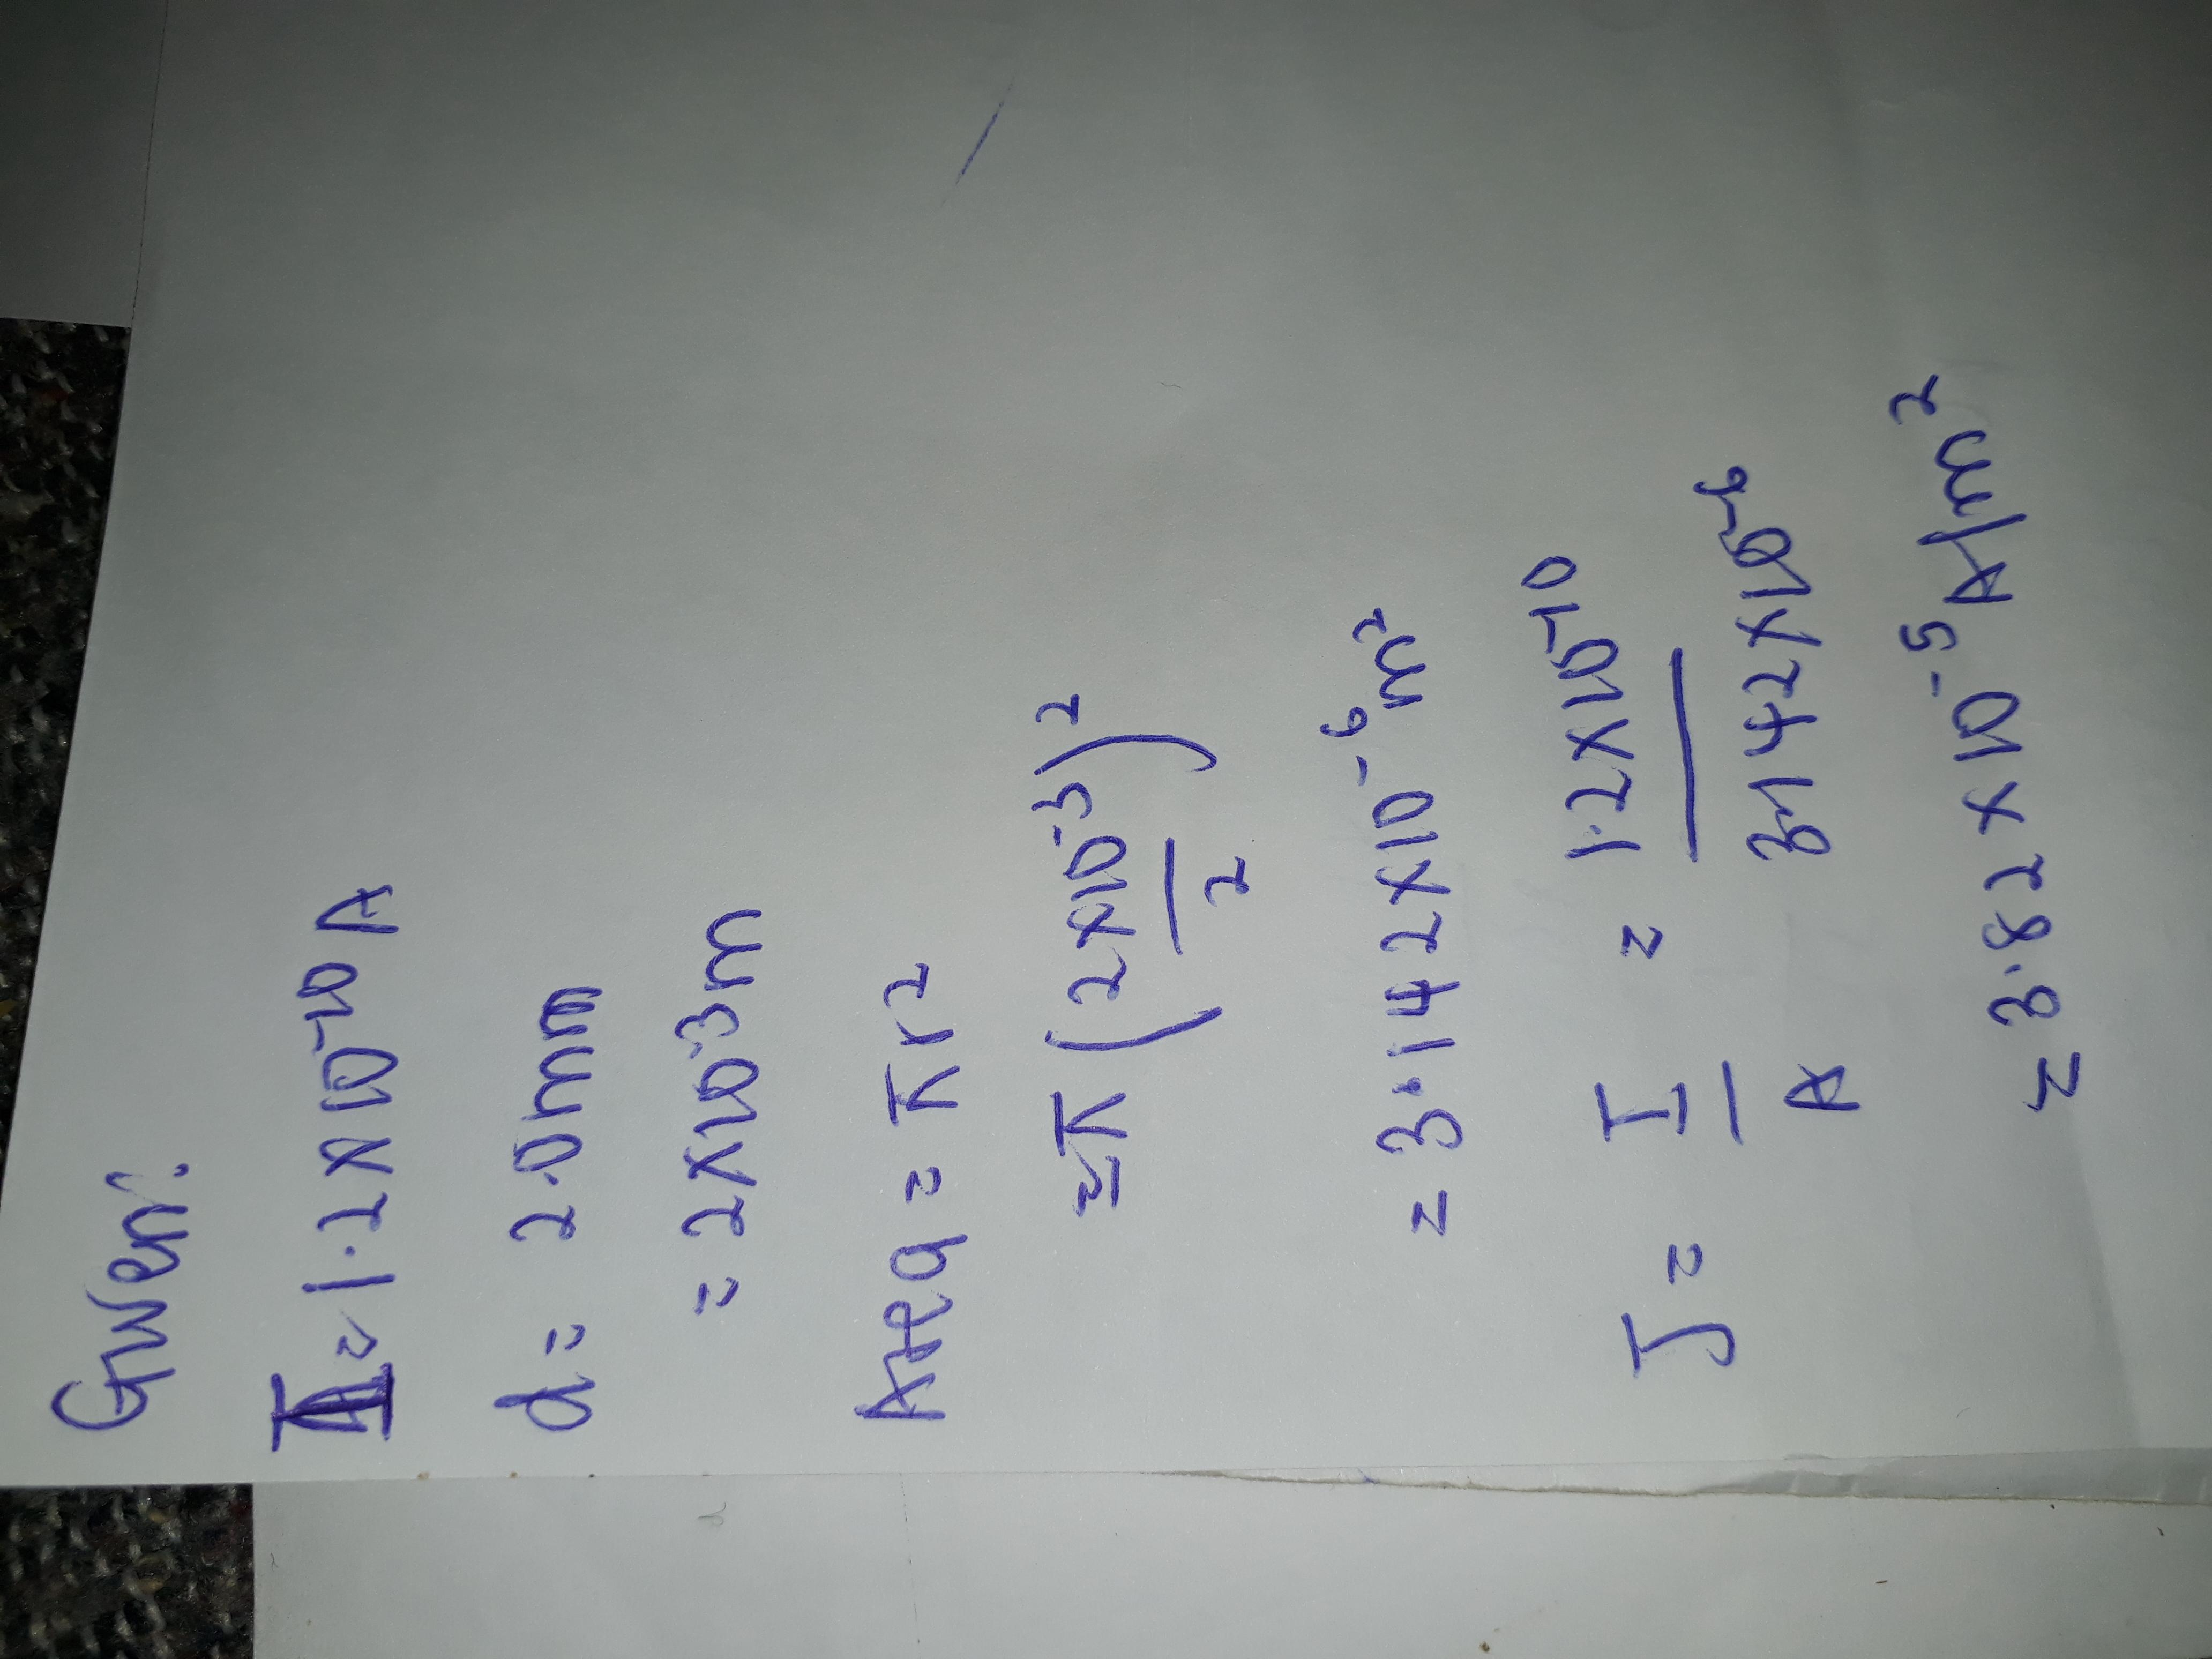 Given:
I = 1.2 × 10⁻¹⁰ A
d = 2.0mm
= 2×10⁻³m
Area = πr²
= π (2×10⁻³/2)²
= 3.142×10⁻⁶ m²
J = I/A = 1.2×10⁻¹⁰/3.142×10⁻⁶
= 3.82 × 10⁻⁵ A/m²